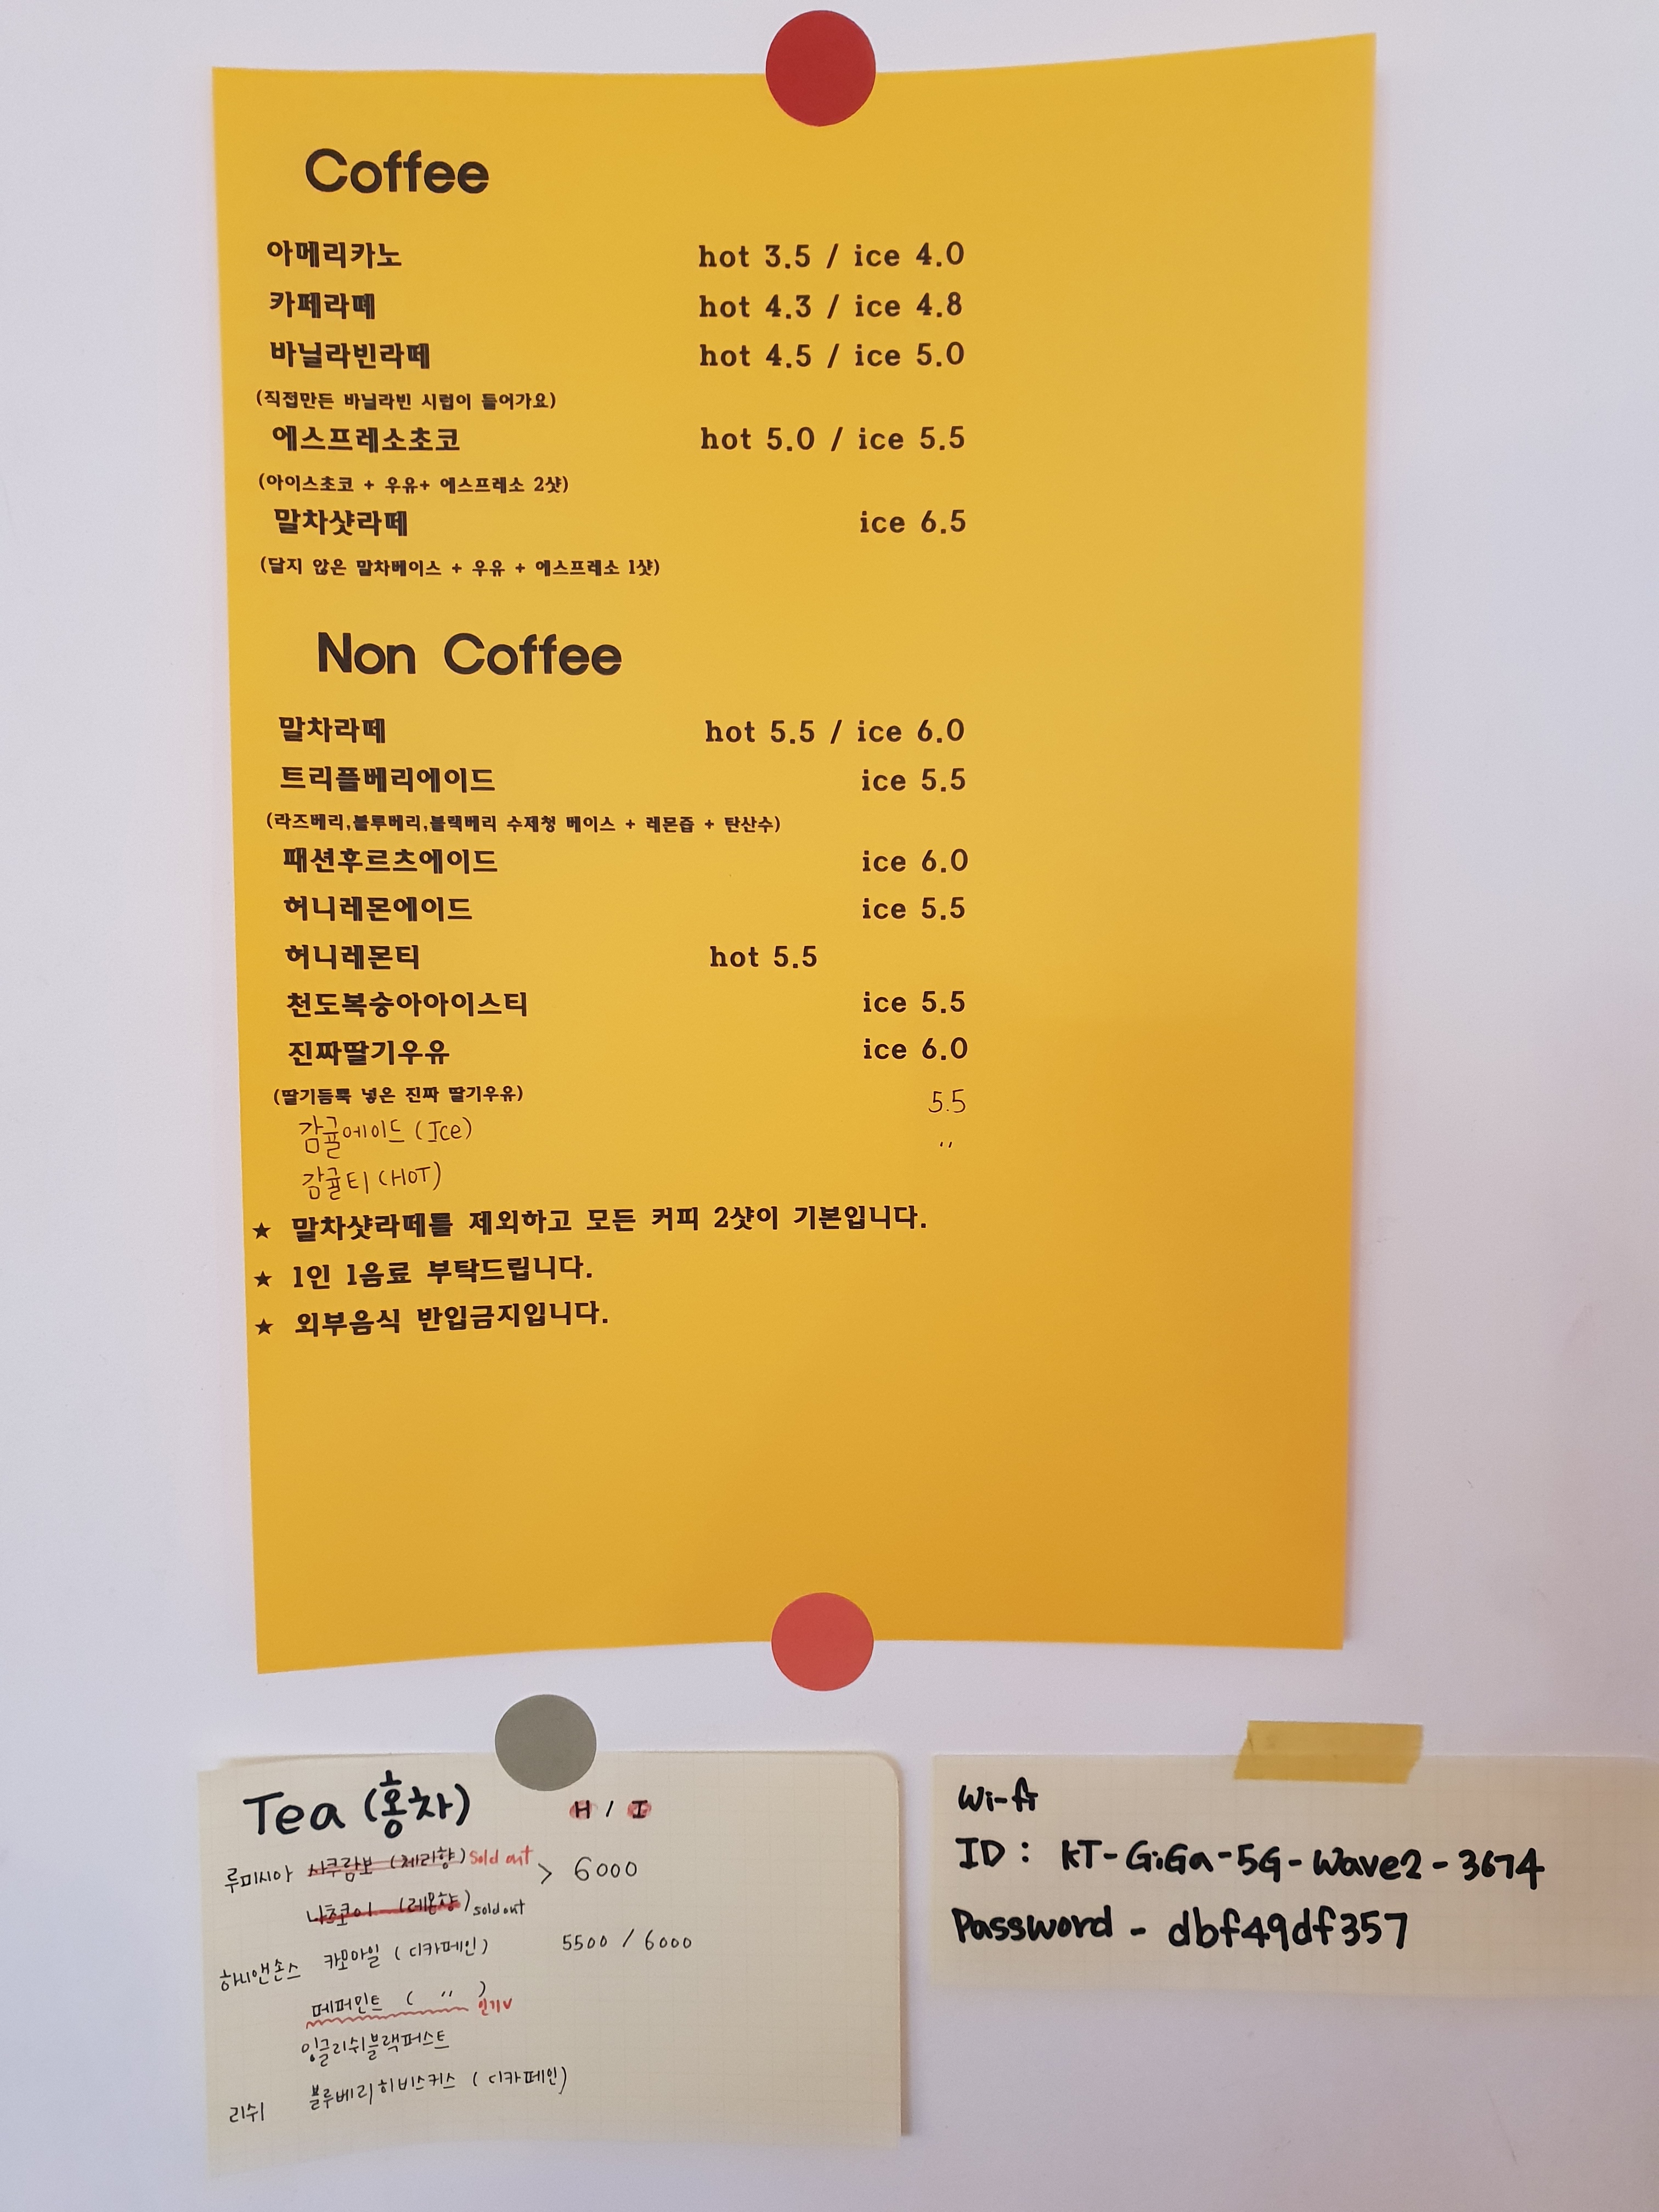 Coffee
아메리카노 hot 3.5 / ice 4.0
카페라떼 hot 4.3 / ice 4.8
바닐라빈라떼 hot 4.5 / ice 5.0
(직접만든 바닐라빈 시럽이 들어가요)
에스프레소초코 hot 5.0 / ice 5.5
(아이스초코 + 우유+ 에스프레소 2샷)
말차샷라떼 ice 6.5
(달지 않은 말차베이스 + 우유 + 에스프레소 1샷)
Non Coffee
말차라떼 hot 5.5 / ice 6.0
트리플베리에이드 ice 5.5
(라즈베리,블루베리,블랙베리 수제청 베이스 + 레몬즙 + 탄산수)
패션후르츠에이드 ice 6.0
허니레몬에이드 ice 5.5
허니레몬티 hot 5.5
천도복숭아아이스티 ice 5.5
진짜딸기우유 ice 6.0
(딸기듬뿍 넣은 진짜 딸기우유)
감귤에이드 (Ice) 5.5
감귤티 (HOT) "
★ 말차샷라떼를 제외하고 모든 커피 2샷이 기본입니다.
★ 1인 1음료 부탁드립니다.
★ 외부음식 반입금지입니다.
Tea (홍차) H / I
루피시아 사쿠람보 (체리향) Sold out > 6000
나츠코이 (레몬향) sold out
하니앤손스 카모마일 (디카페인) 5500 / 6000
페퍼민트 ( " ) 인기v
잉글리쉬블랙퍼스트
리쉬 블루베리히비스커스 (디카페인)
Wi-fi
ID : KT-GiGa-5G-Wave2-3674
Password - dbf49df357